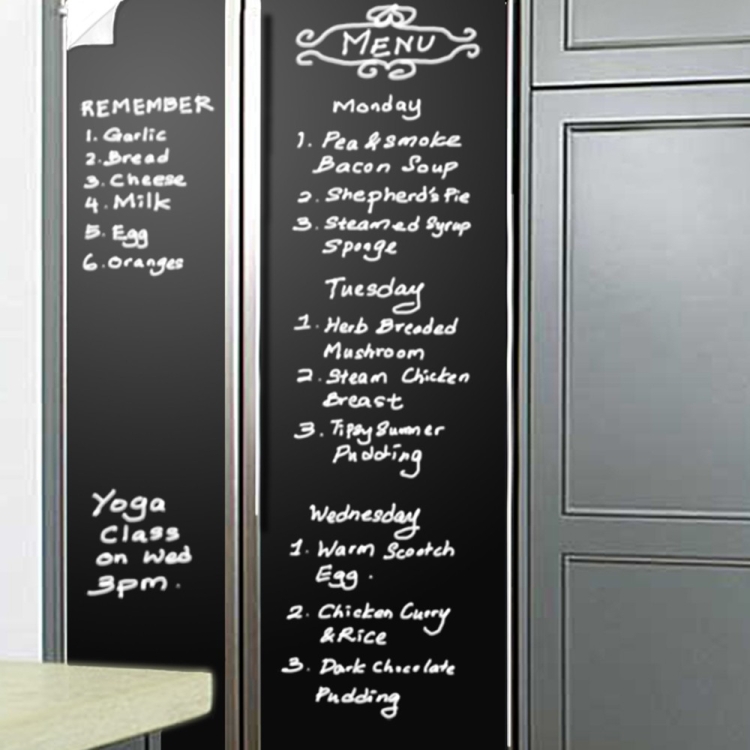 REMEMBER
1. Garlic
2. Bread
3. Cheese
4. Milk
5. Egg
6. Oranges
Yoga
Class
on Wed
3pm.
MENU
Monday
1. Pea & smoke
Bacon Soup
2. Shepherd's Pie
3. Steamed Syrup
Sponge
Tuesday
1. Herb Breaded
Mushroom
2. Steam Chicken
Breast
3. Tipsy Summer
Pudding
Wednesday
1. Warm Scotch
Egg.
2. Chicken Curry
& Rice
3. Dark Chocolate
Pudding